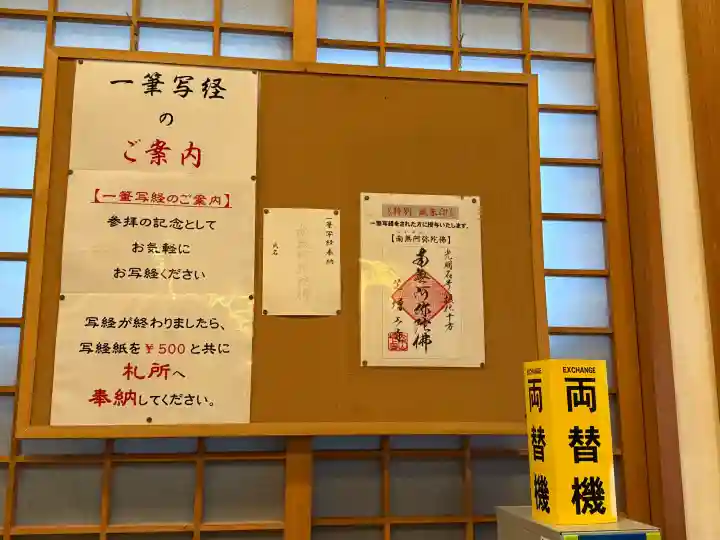 一筆写経
の
ご案内
【一筆写経のご案内】
参拝の記念として
お気軽に
お写経ください
写経が終わりましたら、
写経紙を￥500と共に
札所へ
奉納してください。
一筆写経奉納
氏名
一筆写経をされた方に授与いたします。
【南無阿弥陀佛】
南無阿弥陀佛
EXCHANGE
両替機
EXCHANGE
両替機